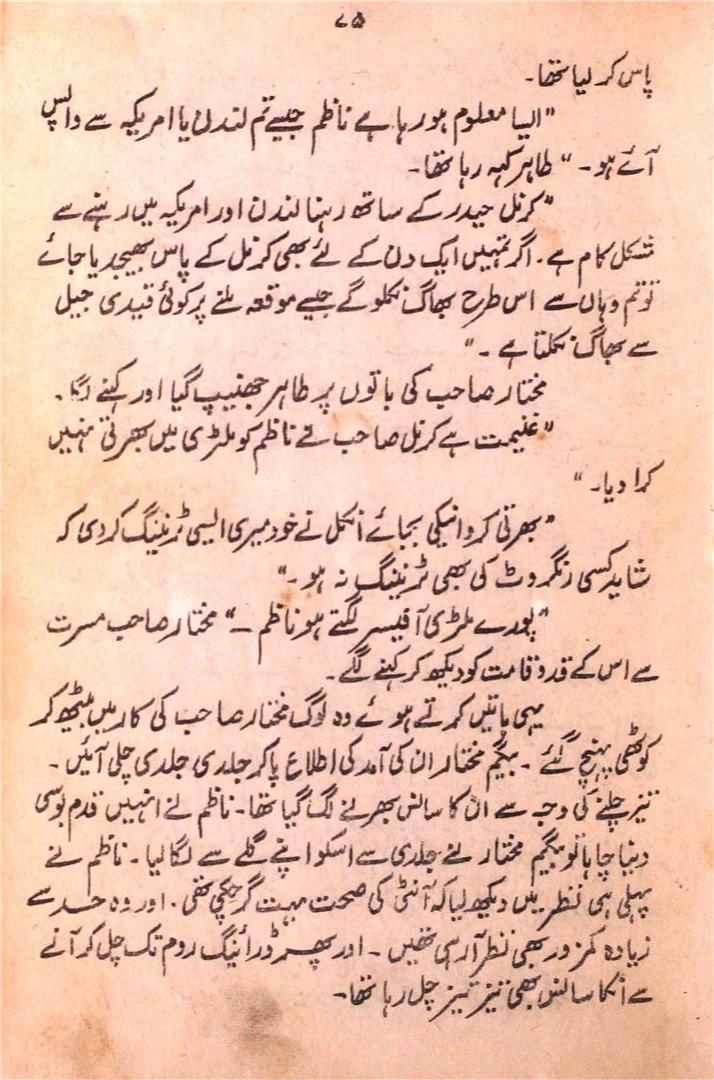 ۷۵
پاس کر لیا تھا۔
"ایسا معلوم ہو رہا ہے ناظم جیسے تم لندن یا امریکہ سے واپس
آئے ہو۔" طاہر کہہ رہا تھا۔
"کرنل حیدر کے ساتھ رہنا لندن اور امریکہ میں رہنے سے
مشکل کام ہے۔ اگر تمہیں ایک دن کے لئے بھی کرنل کے پاس بھیجدیا جائے
تو تم وہاں سے اس طرح بھاگ نکلو گے جیسے موقعہ ملنے پر کوئی قیدی جیل
سے بھاگ نکلتا ہے۔"
مختار صاحب کی باتوں پر طاہر جھنیپ گیا اور کہنے لگا۔
"غنیمت ہے کرنل صاحب نے ناظم کو ملٹری میں بھرتی نہیں
کرا دیا۔"
"بھرتی کروانیکی بجائے انکل نے خود میری ایسی ٹریننگ کر دی کہ
شاید کسی رنگروٹ کی بھی ٹریننگ نہ ہو۔"
"پورے ملٹری آفیسر لگتے ہو ناظم۔" مختار صاحب مسرت
سے اس کے قد و قامت کو دیکھ کر کہنے لگے۔
یہی باتیں کرتے ہوئے وہ لوگ مختار صاحب کی کار میں بیٹھ کر
کوٹھی پہنچ گئے۔ بیگم مختار ان کی آمد کی اطلاع پا کر جلدی جلدی چلی آئیں۔
تیز چلنے کی وجہ سے ان کا سانس بھرنے لگ گیا تھا۔ ناظم نے انہیں قدم بوسی
دینا چاہا تو بیگم مختار نے جلدی سے اسکو اپنے گلے سے لگا لیا۔ ناظم نے
پہلی ہی نظر میں دیکھ لیا کہ آنٹی کی صحت بہت گر چکی تھی۔ اور وہ حد سے
زیادہ کمزور بھی نظر آ رہی تھیں۔ اور پھر ڈرائینگ روم تک چل کر آنے
سے انکا سانس بھی تیز تیز چل رہا تھا۔